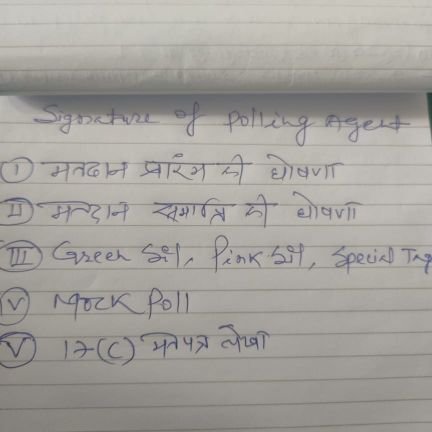 Signature of polling Agent
I मतदान प्रारंभ की घोषणा
II मतदान समाप्ति की घोषणा
III Green सील, Pink सील, Special Tag
V Mock Poll
V 17(C) मतपत्र लेखा